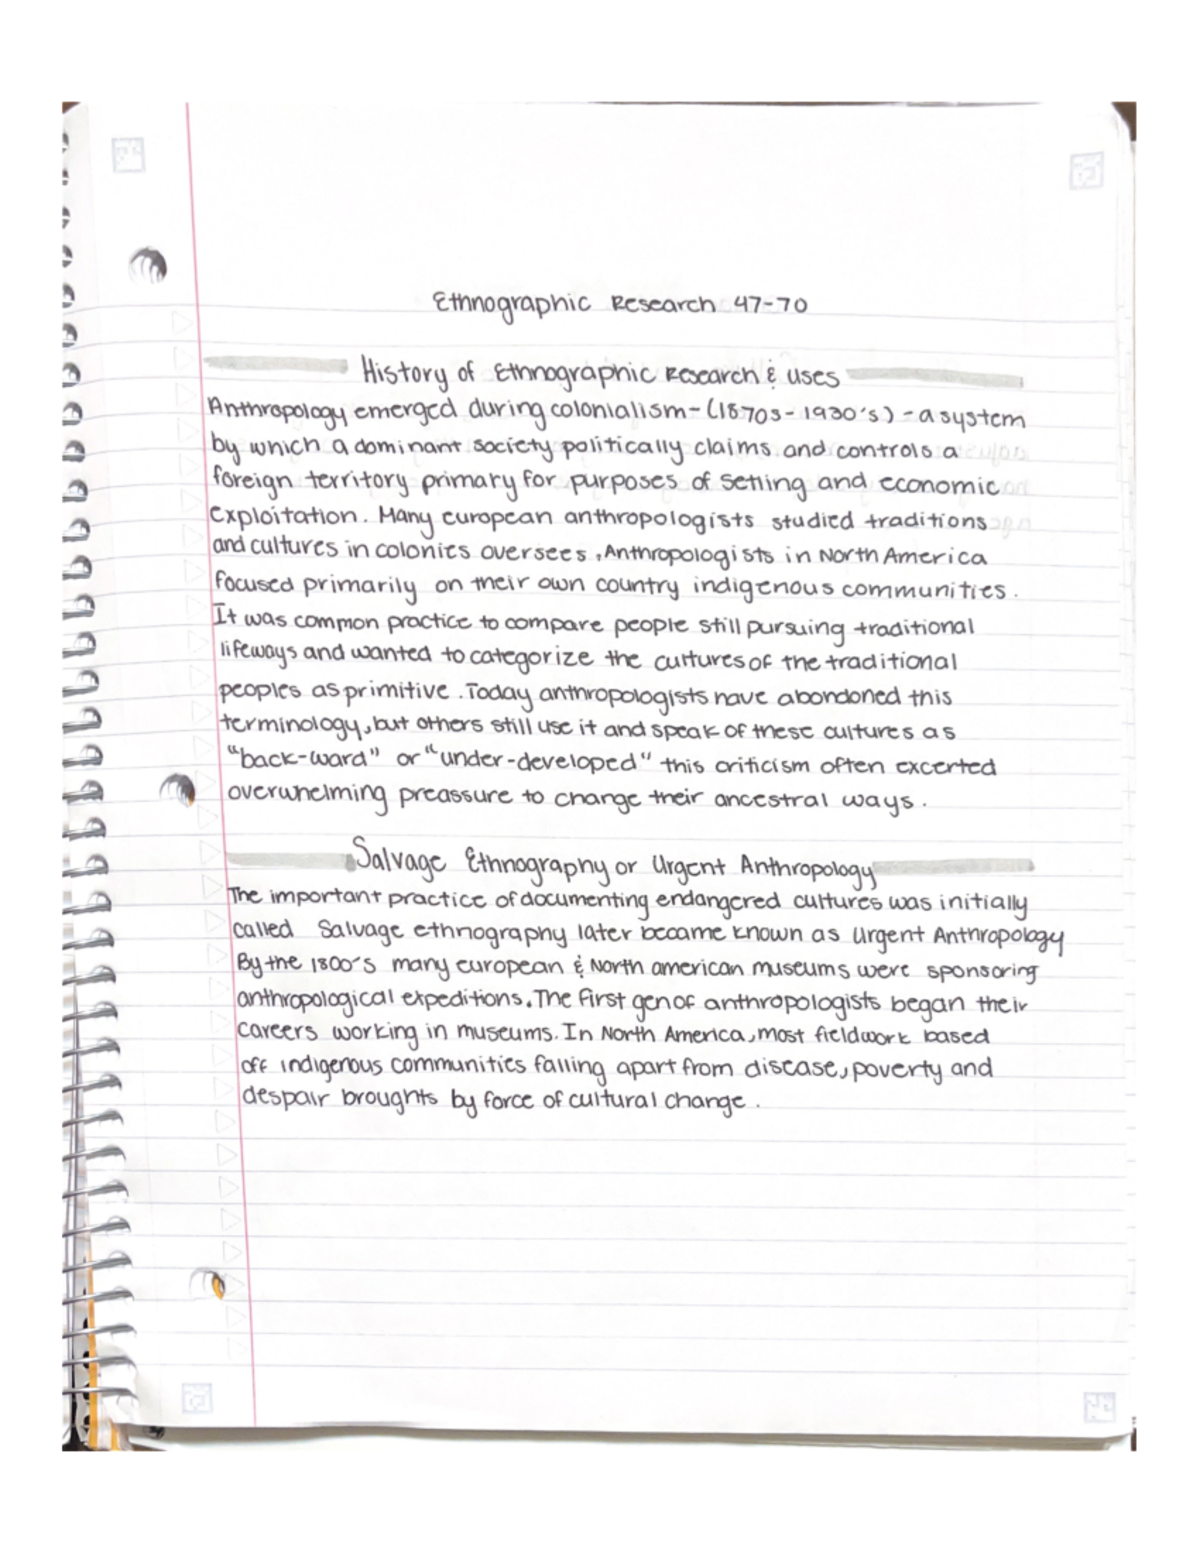 Ethnographic Research 47-70
History of Ethnographic Research & uses
Anthropology emerged during colonialism-(1870s-1930's)-a system
by which a dominant society politically claims and controls a
foreign territory primary for purposes of setting and economic
exploitation. Many european anthropologists studied traditions
and cultures in colonies oversees, Anthropologists in North America
focused primarily on their own country indigenous communities.
It was common practice to compare people still pursuing traditional
lifeways and wanted to categorize the cultures of the traditional
peoples as primitive. Today anthropologists have abondoned this
terminology, but others still use it and speak of these cultures as
"back-ward" or "under-developed" this criticism often excerted
overwhelming preassure to change their ancestral ways.
Salvage Ethnography or Urgent Anthropology
The important practice of documenting endangered cultures was initially
called Salvage ethnography later became known as Urgent Anthropology
By the 1800's many european & North american museums were sponsoring
anthropological expeditions. The first gen of anthropologists began their
careers working in museums. In North America, most fieldwork based
off indigenous communities falling apart from disease, poverty and
despair broughts by force of cultural change.